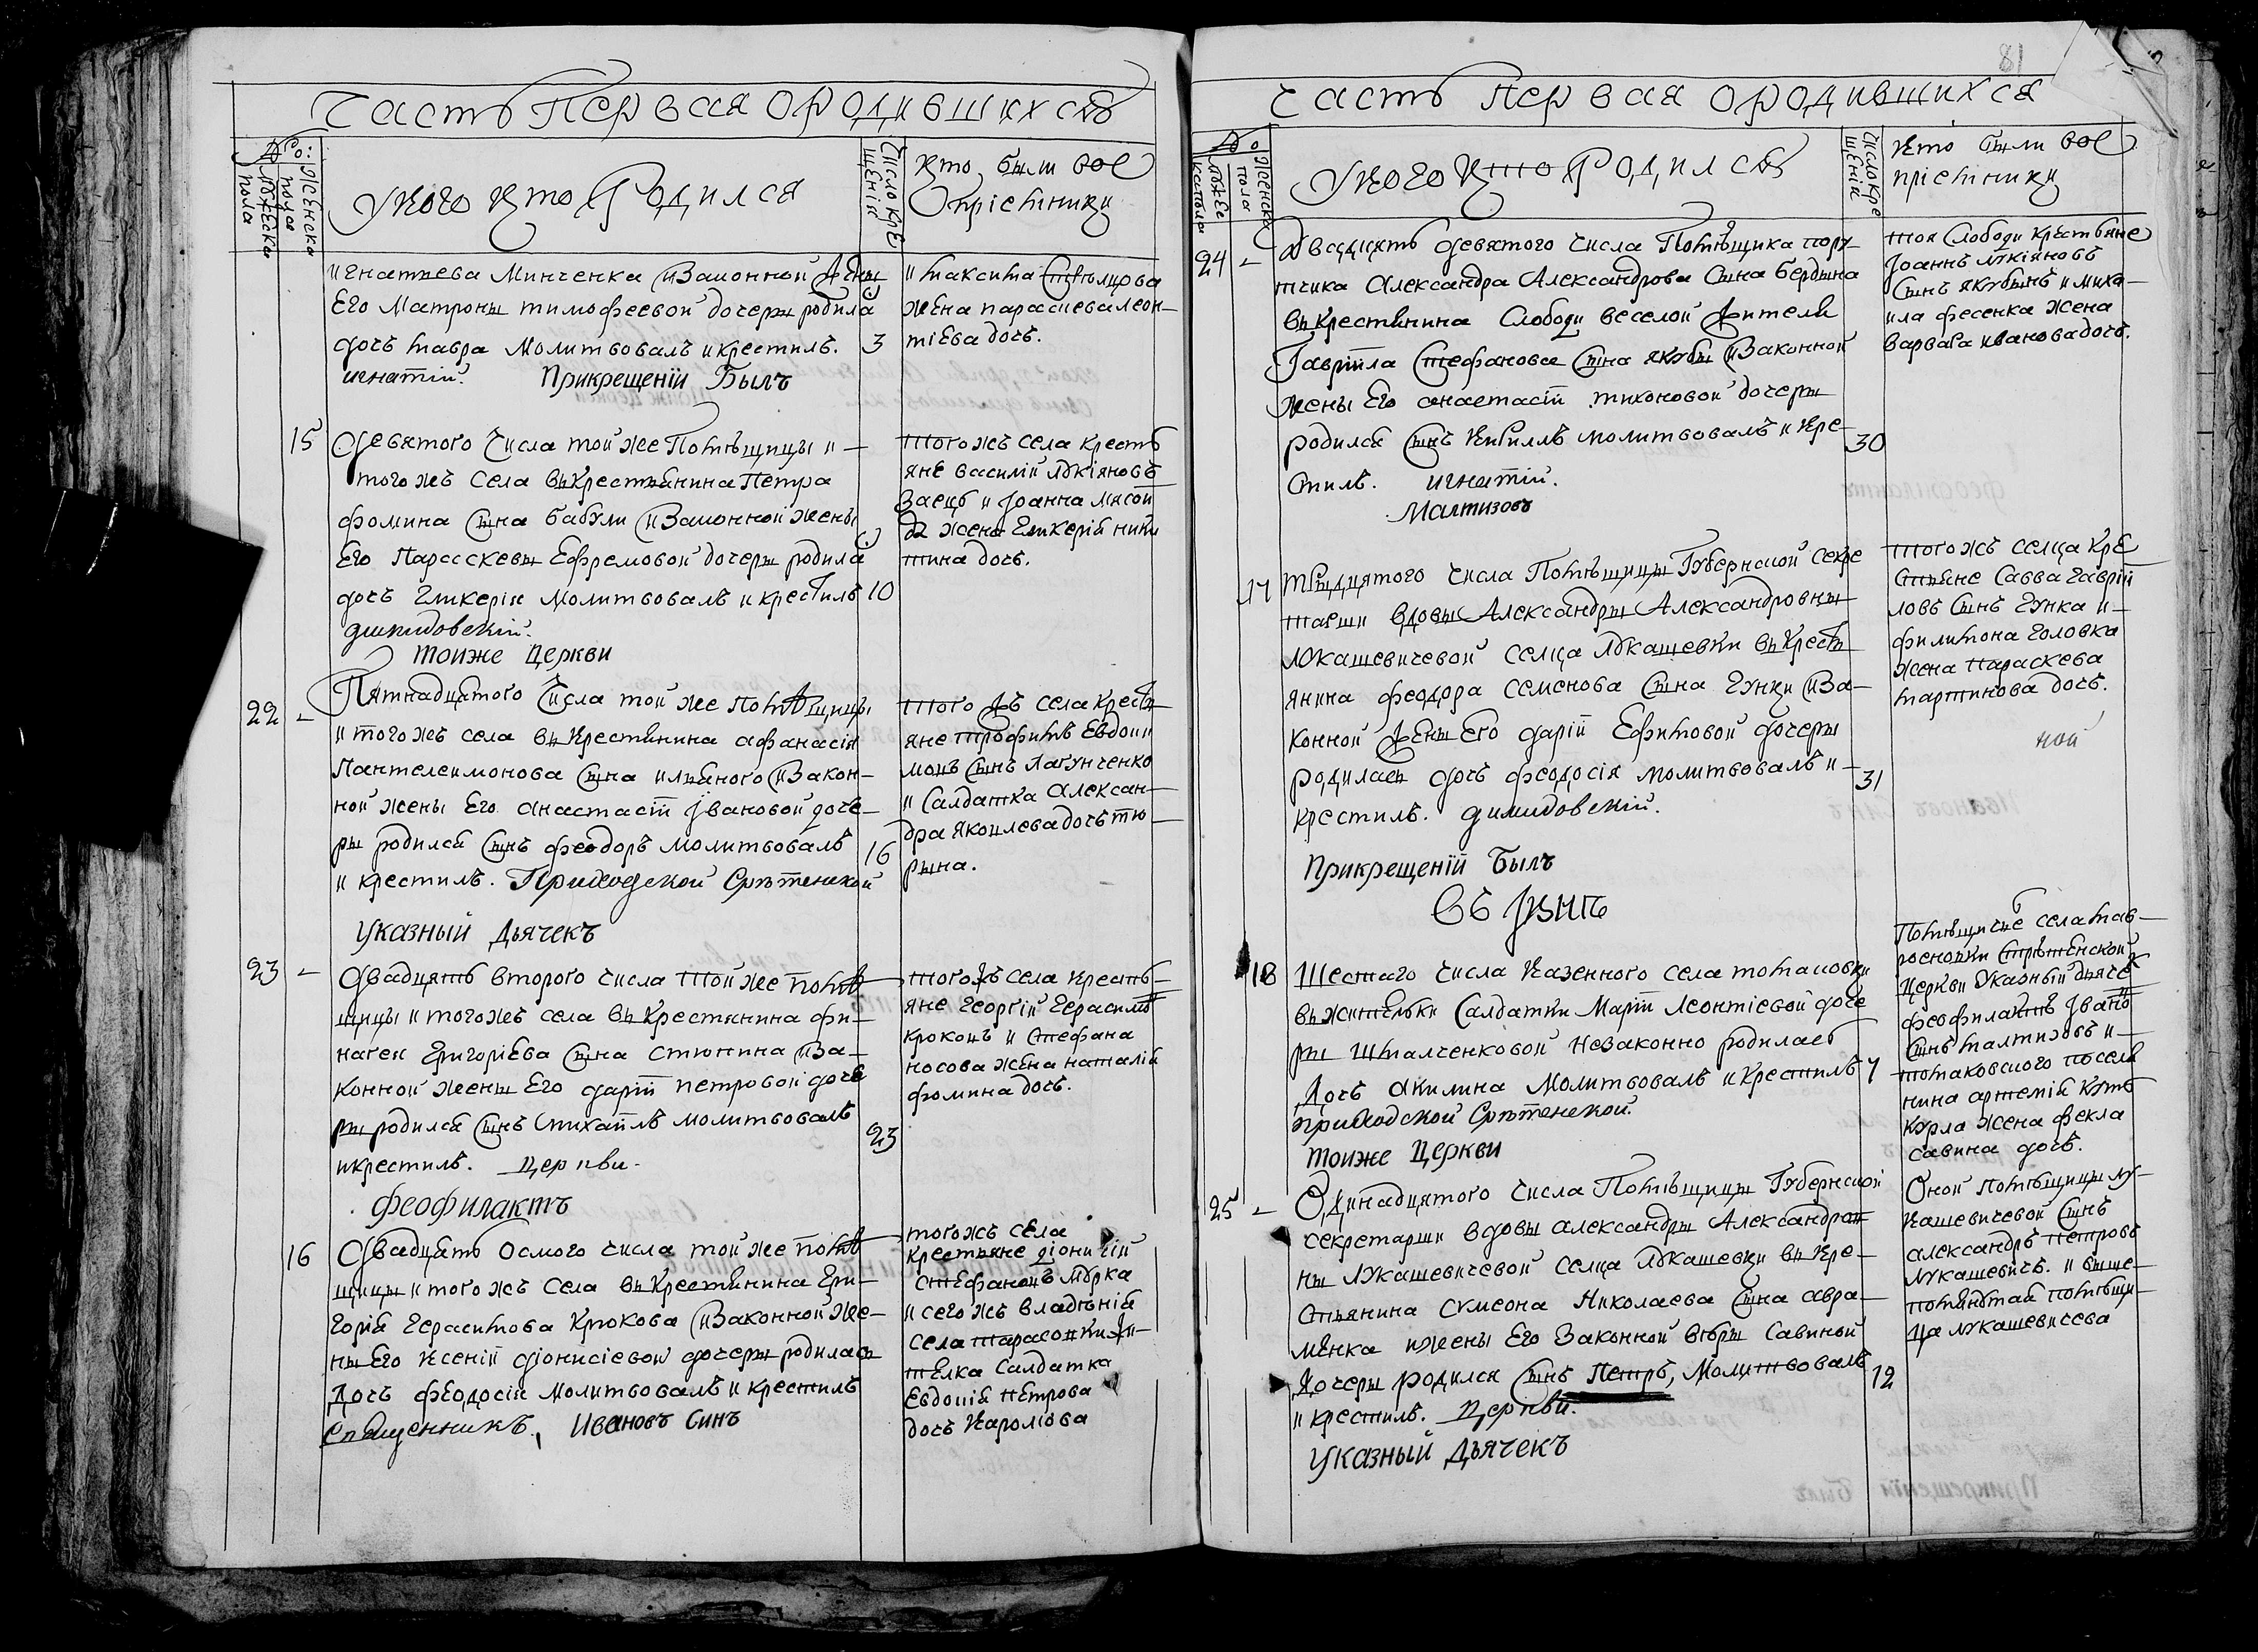 Часть Первая ородившихся
No:
Мужеска пола
Женска пола
Укого кто Родился
Число крещеній
кто были вос
пріемники
игнатиева Минченка изаконной жены
Его Матроны тимофеевой дочери родила
дочь мавра Молитвовалъ икрестилъ. 3
игнатій. Прикрещеніи Былъ
жена параскева леон
тіева дочь.
15 девятого числа той же Помѣщицы и
того жъ села вкрестьянина Петра
фомина сына бабули изаконной жены
Его Параскевы Ефремовой дочери родила
дочь Гликерія Молитвовалъ икрестилъ 10
димидовскій.
Тоиже Церкви
того жъ села кресть
яне василій лукіяновъ
Заецъ и Іоанна
жена Гликерія ники
тина дочь.
22 Пятнадцятого числа той же помѣщицы
и того жъ села вкрестьянина афанасія
Пантелеимонова сына изакон
ной жены Его анастасіи Івановой доче
ры родился сынъ феодоръ молитвовалъ 16
и крестилъ. Приходской Срѣтенской
Указный Дьячекъ
того жъ села кресть
яне трофимъ Евдоки
мовъ сынъ Лагунченко
и Салдатка Алексан
дра Яковлева дочь тю
рина.
23 Двадцять второго числа той же помѣ
щицы и того жъ села вкрестьянина фи
Григоріева сына изa
конной жены Его даріи петровой доче
ры родился сынъ михаилъ молитвовалъ 23
икрестилъ. Церкви.
феофилактъ
того жъ села кресть
яне Георгій Герасимъ
и стефана
носова жена наталія
фомина дочь.
16 Двадцять осмого числа той же помѣ
щицы и того жъ села вкрестьянина Гри
горія Герасимова Крюкова изаконной же
ны Его ксеніи діонисіевой дочери родилась
дочь феодосія молитвовалъ и крестилъ
Священникъ. Ивановъ Синъ
того жъ села
крестьяне діонисій
стефановъ мурка
и сего жъ владѣнія
села тарасовки жи
телка Салдатка
Евдокія петрова
дочь
81
Часть Первая ородившихся
No
Мужескаго пола
Женска пола
Укого кто Родился
Число крещеній
кто были вос
пріемники
24 Двадцять девятого числа Помѣщика пору
тчика Александра Александрова Сына бердяева
вкрестьянина Слободы веселой жителя
Гавріила Стефанова Сына якубы изаконной
жены Его анастасіи тихоновой дочери
родился сынъ Кириллъ молитвовалъ и кре 30
стилъ. игнатій.
Малтизовъ
тоя Слободы крестьяне
Іоаннъ лукіяновъ
Сынъ якубынъ и миха
ила фесенка жена
варвара иванова дочь.
17 тридцятого числа Помѣщицы Губернской секре
тарши вдовы Александры Александровны
Лукашевичевой селца Лукашевки вкресть
янина феодора семенова сына Гунки иза
конной жены Его даріи Ефимовой дочери
родилась дочь феодосія молитвовалъ и 31
крестилъ. димидовскій.
Прикрещеніи Былъ
того жъ селца кре
стьяне Савва Гаврій
ловъ сынъ Гунка и
филимона Головка
жена параскева
мартинова дочь.
ной
Въ Іюнѣ
18 Шестаго числа казенного села томаковки
вжительки салдатки Маріи Леонтіевой доче
ры незаконно родилась
Дочь акилина Молитвовалъ и Крестилъ 7
приходской Срѣтенской.
тоиже Церкви
Помѣщичье села
Срѣтенской
Церкви Указный дьячек
феофилактъ Івано
сынъ малтизовъ и
томаковского
артемій
жена фекла
савина дочь.
25 Одинадцятого числа Помѣщицы Губернской
секретарши вдовы александры Александров
ны Лукашевичевой селца Лукашевки вкре
стьянина Сумеона Николаева сына авра
менка ижены Его Законной вѣры Савиной
дочеры родился сынъ Петръ, Молитвовалъ 12
и крестилъ. Церкви.
Указный Дьячекъ
Оной помѣщицы лу
кашевичевой сынъ
александръ петровъ
лукашевичъ. и выше
помянутая помѣщи
ца лукашевичева